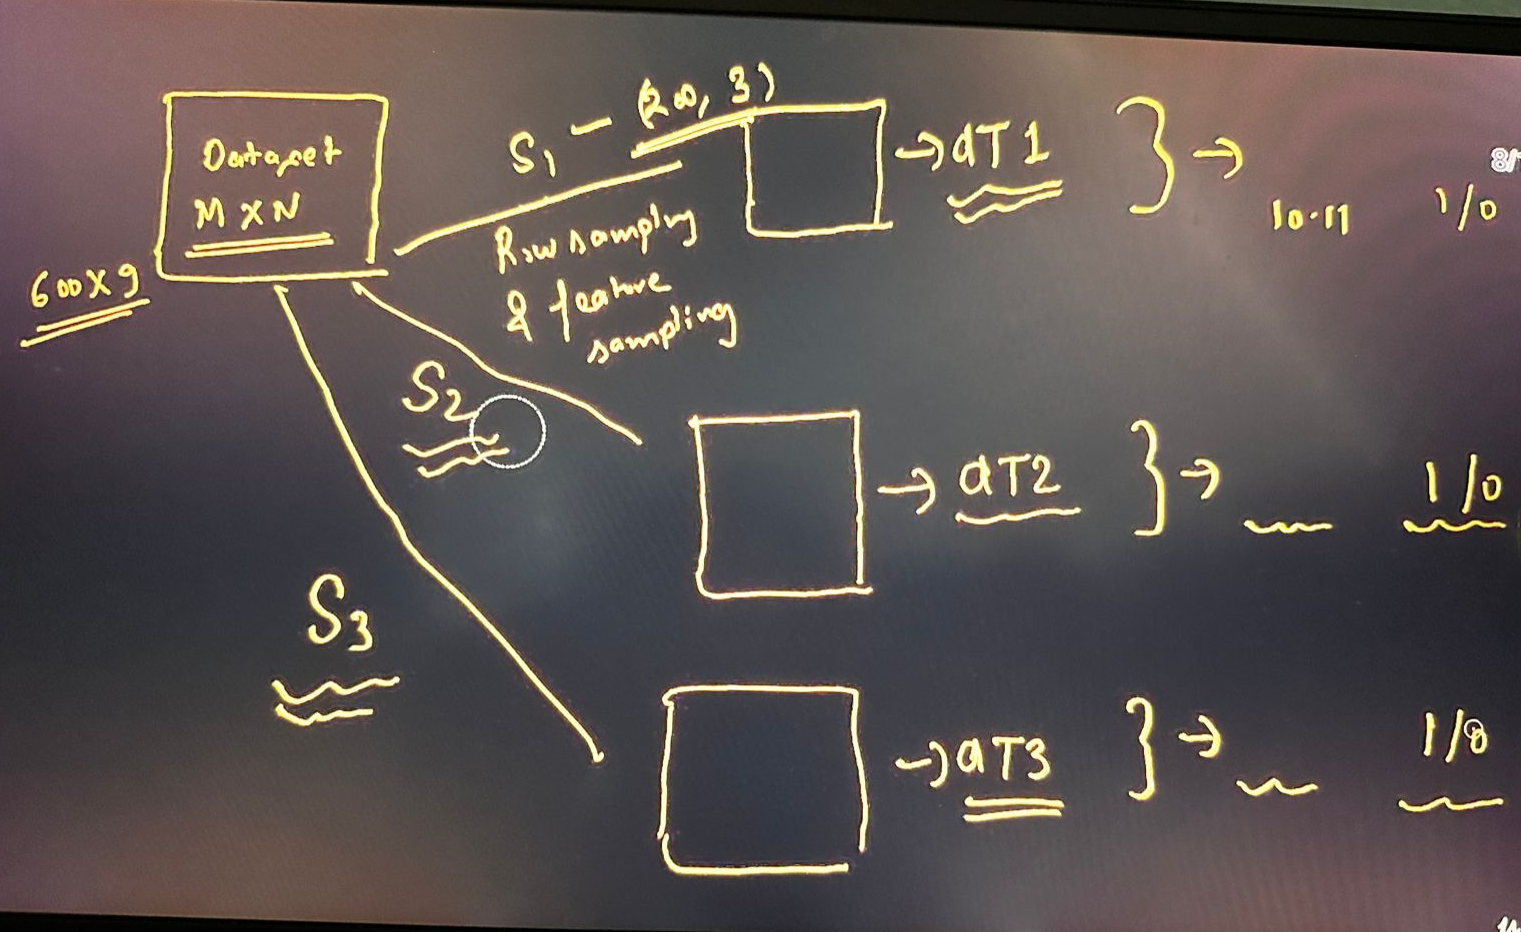 Dataset
M X N
600 X 9
S1 - (200, 3)
Row sampling
& feature
sampling
→ dT1 } →
10.11 1/0
S2
→ dT2 } →
1/0
S3
→ dT3 } →
1/0